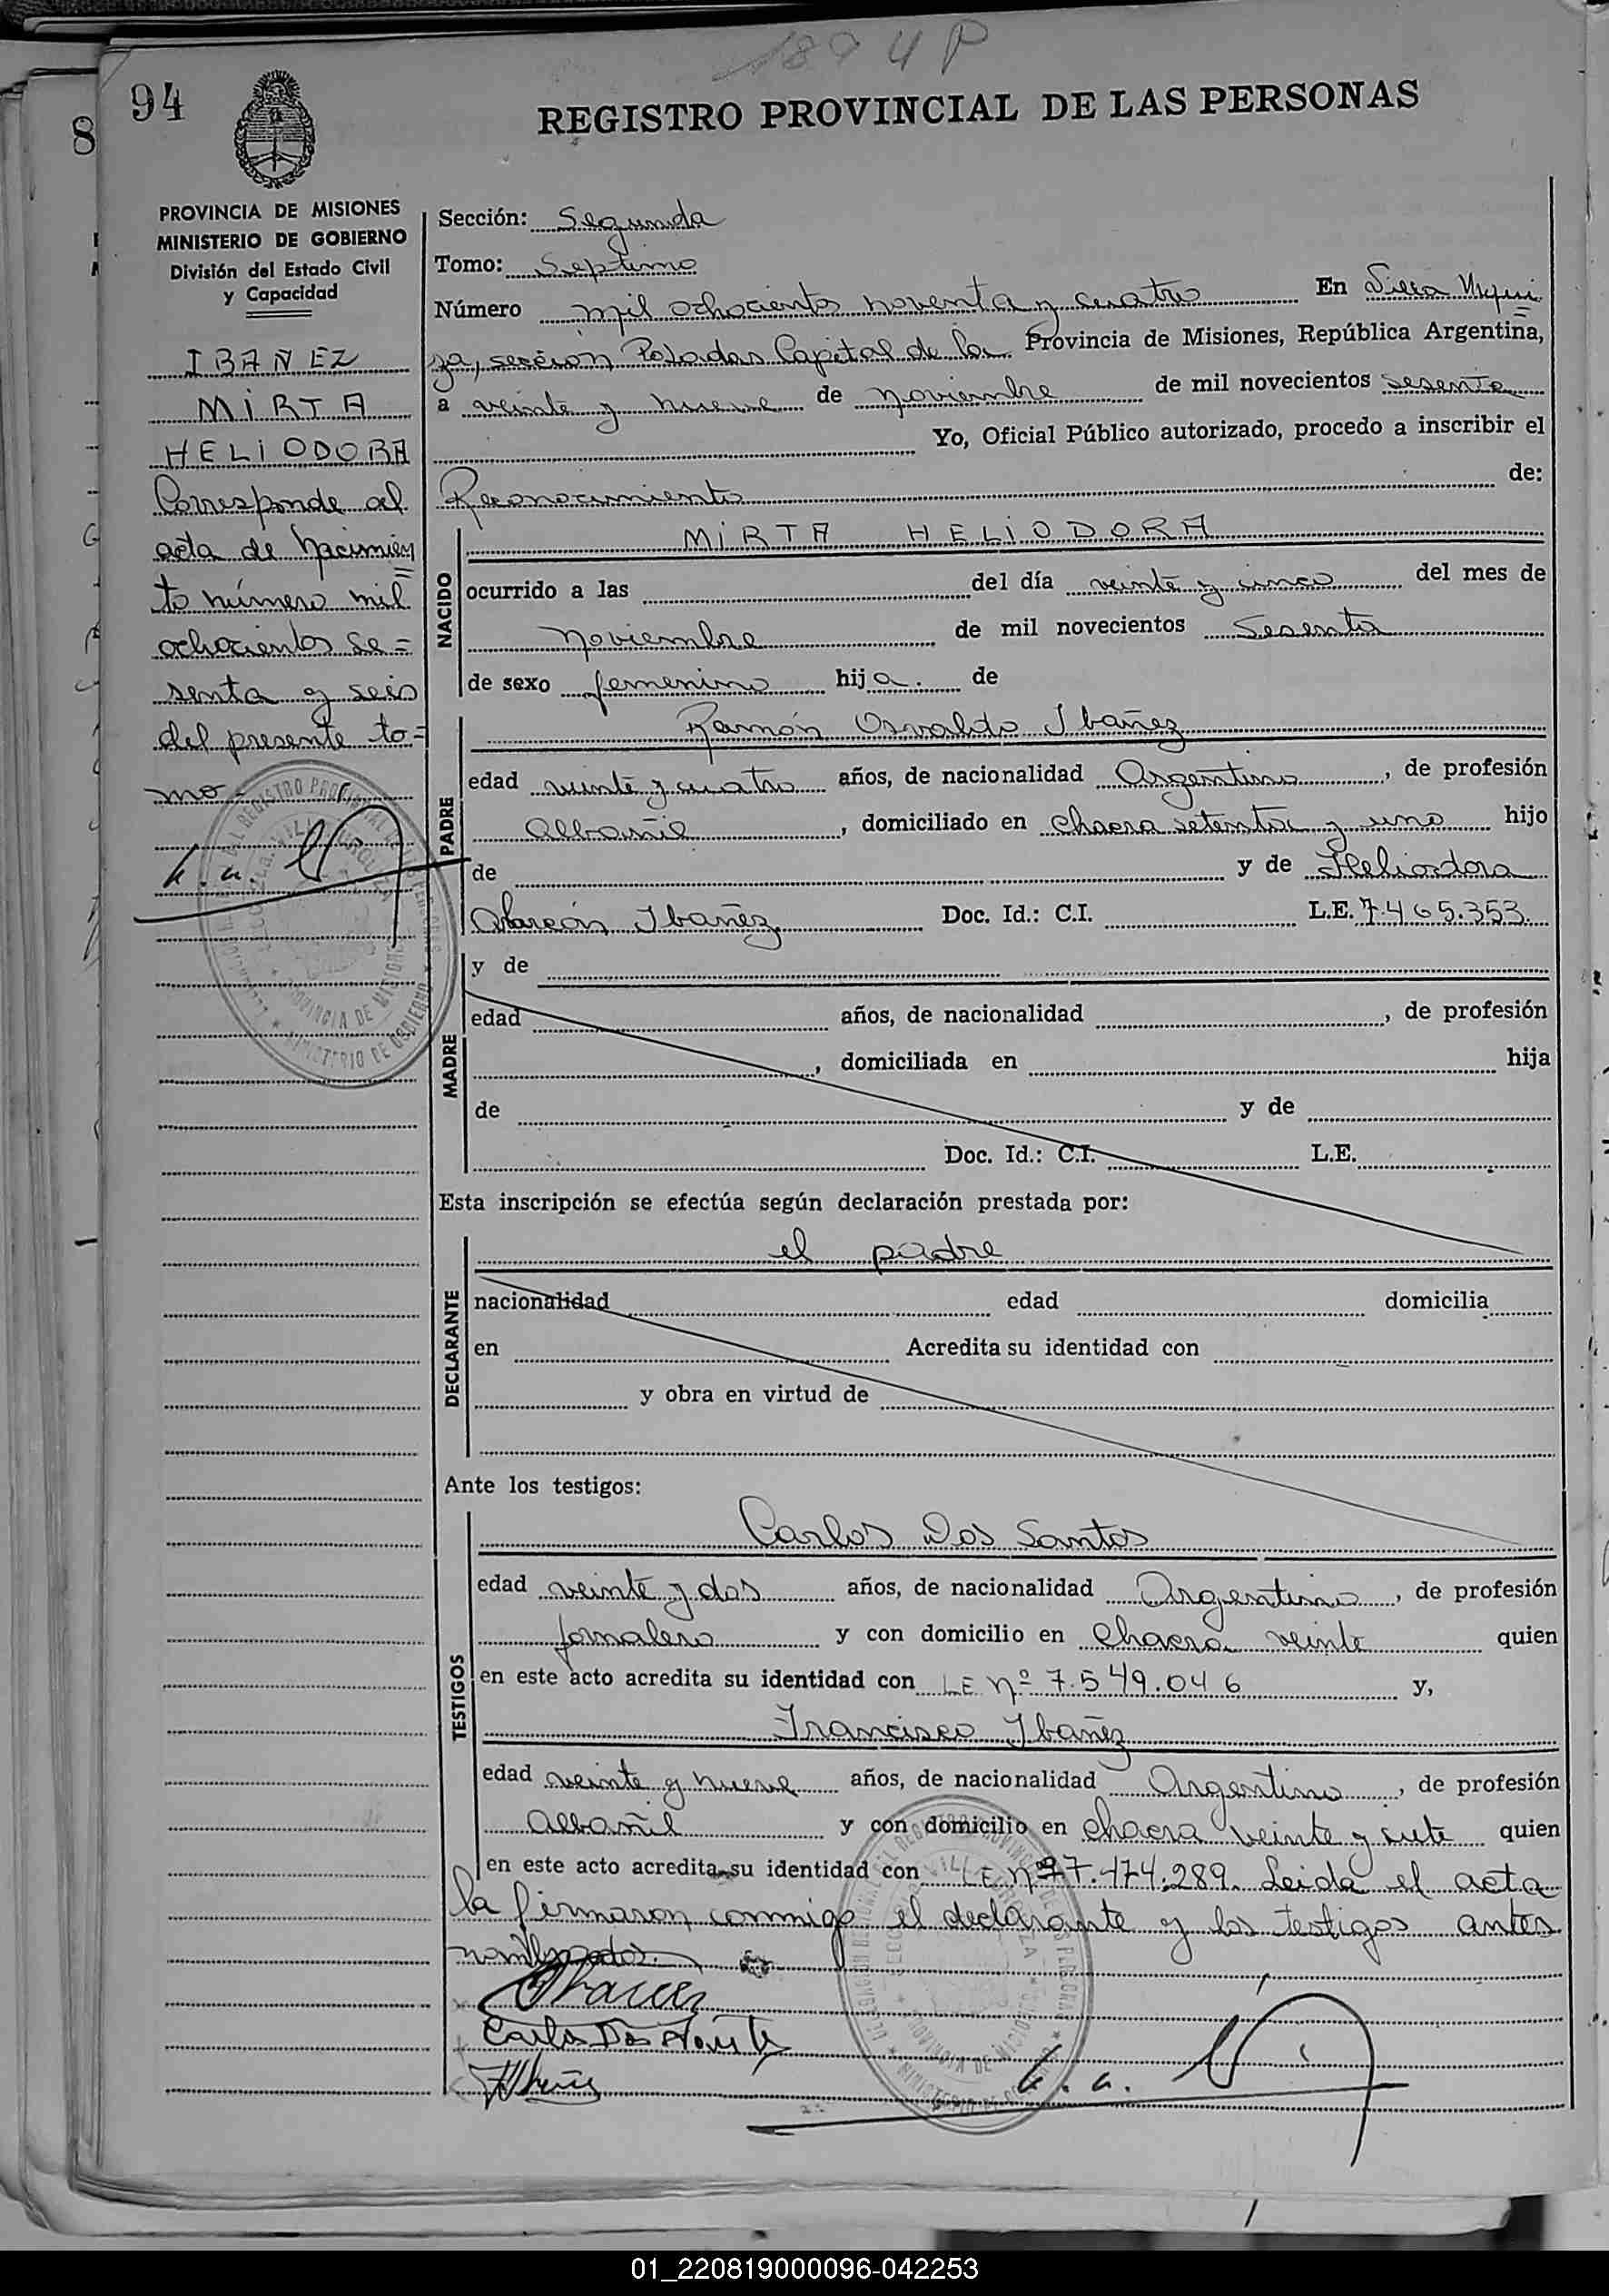 1894 P
94
REGISTRO PROVINCIAL DE LAS PERSONAS
8
PROVINCIA DE MISIONES
MINISTERIO DE GOBIERNO
División del Estado Civil
y Capacidad
IBAÑEZ
MIRTA
HELIODORA
Corresponde al
acta de nacimien
to número mil
ochocientos se=
senta y seis
del presente to=
mo
Sección: Segunda
Tomo: Septimo
Número mil ochocientos noventa y cuatro En Villa Urqui
za, sección Posadas Capital de la Provincia de Misiones, República Argentina,
a veinte y nueve de noviembre de mil novecientos sesenta
Yo, Oficial Público autorizado, procedo a inscribir el
Reconocimiento de:
NACIDO
MIRTA HELIODORA
ocurrido a las del día veinte y cinco del mes de
noviembre de mil novecientos sesenta
de sexo femenino hija. de
PADRE
Ramón Osvaldo Ibañez
edad veinte y cuatro años, de nacionalidad Argentino, de profesión
Albañil, domiciliado en chacra setenta y uno hijo
de y de Heliodora
Alarcón Ibañez Doc. Id.: C.I. L.E. 7.465.353
MADRE
y de
edad años, de nacionalidad , de profesión
, domiciliada en hija
de y de
Doc. Id.: C.I. L.E.
Esta inscripción se efectúa según declaración prestada por:
DECLARANTE
el padre
nacionalidad edad domicilia
en Acredita su identidad con
y obra en virtud de
Ante los testigos:
TESTIGOS
Carlos Dos Santos
edad veinte y dos años, de nacionalidad Argentino, de profesión
jornalero y con domicilio en chacra veinte quien
en este acto acredita su identidad con LE Nº 7.549.046 y,
Francisco Ibañez
edad veinte y nueve años, de nacionalidad Argentino, de profesión
Albañil y con domicilio en chacra veinte y siete quien
en este acto acredita su identidad con LE Nº 7.474.289. Leida el acta
la firmaron conmigo el declarante y los testigos antes
nombrados.
Carlos Dos Santos
01_220819000096-042253